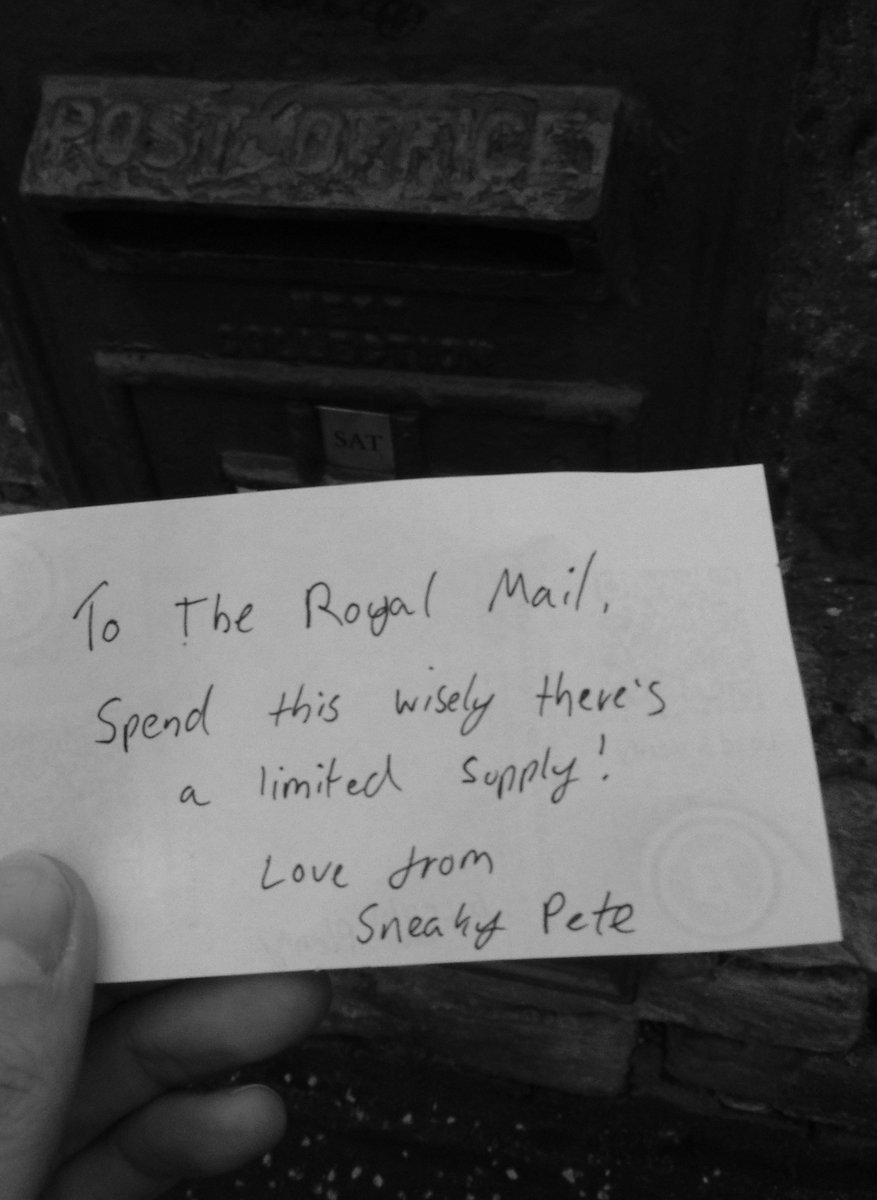 POST OFFICE
COLLECTION
SAT
To The Royal Mail,
Spend this wisely there's
a limited supply!
Love from
Sneaky Pete